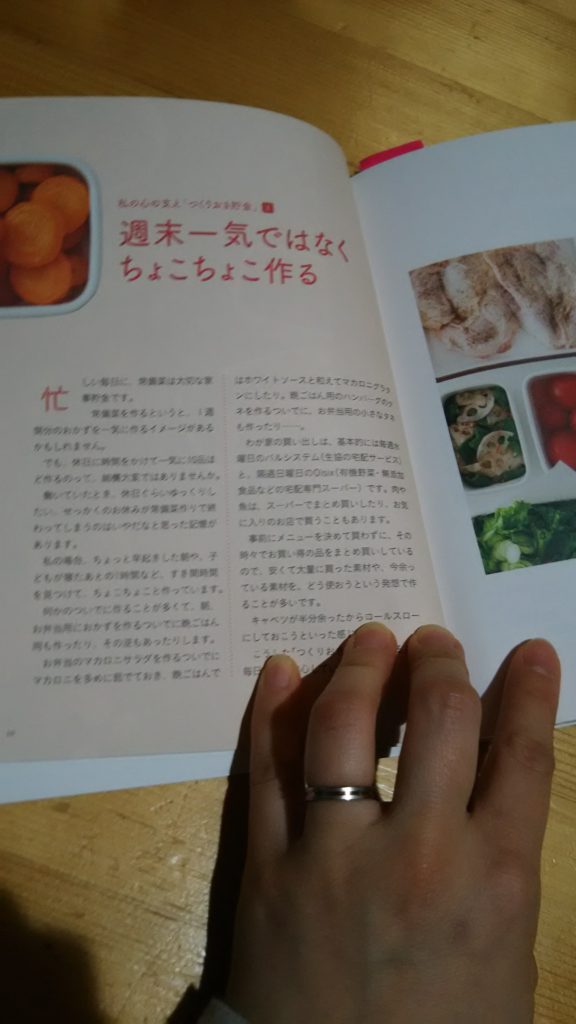 私の心の支え「つくりおき貯金」1
週末一気ではなく
ちょこちょこ作る
忙しい毎日に、常備菜は大切な家
事貯金です。
常備菜を作るというと、1週
間分のおかずを一気に作るイメージがある
かもしれません。
でも、休日に時間をかけて一気に10品ほ
ど作るのって、結構大変ではありませんか。
働いていたとき、休日ぐらいゆっくりし
たい、せっかくのお休みが常備菜作りで終
わってしまうのはいやだなと思った記憶が
あります。
私の場合、ちょっと早起きした朝や、子
どもが寝たあとの1時間など、すき間時間
を見つけて、ちょこちょこ作っています。
何かのついでに作ることが多くて、朝、
お弁当用におかずを作るついでに晩ごはん
用も作ったり、その逆もあったりします。
お弁当のマカロニサラダを作るついでに
マカロニを多めに茹でておき、晩ごはんで
はホワイトソースと和えてマカロニグラタ
ンにしたり。晩ごはん用のハンバーグのタ
ネを作るついでに、お弁当用の小さなタネ
も作ったり……。
わが家の買い出しは、基本的には毎週水
曜日のパルシステム(生協の宅配サービス)
と、隔週日曜日のOisix(有機野菜・無添加
食品などの宅配専門スーパー)です。肉や
魚は、スーパーでまとめ買いしたり、お気
に入りのお店で買うこともあります。
事前にメニューを決めて買わずに、その
時々でお買い得の品をまとめ買いしている
ので、安くて大量に買った素材や、今余っ
ている素材を、どう使おうという発想で作
ることが多いです。
キャベツが半分余ったからコールスロー
にしておこうといった感じ
こうした「つくりお
毎日